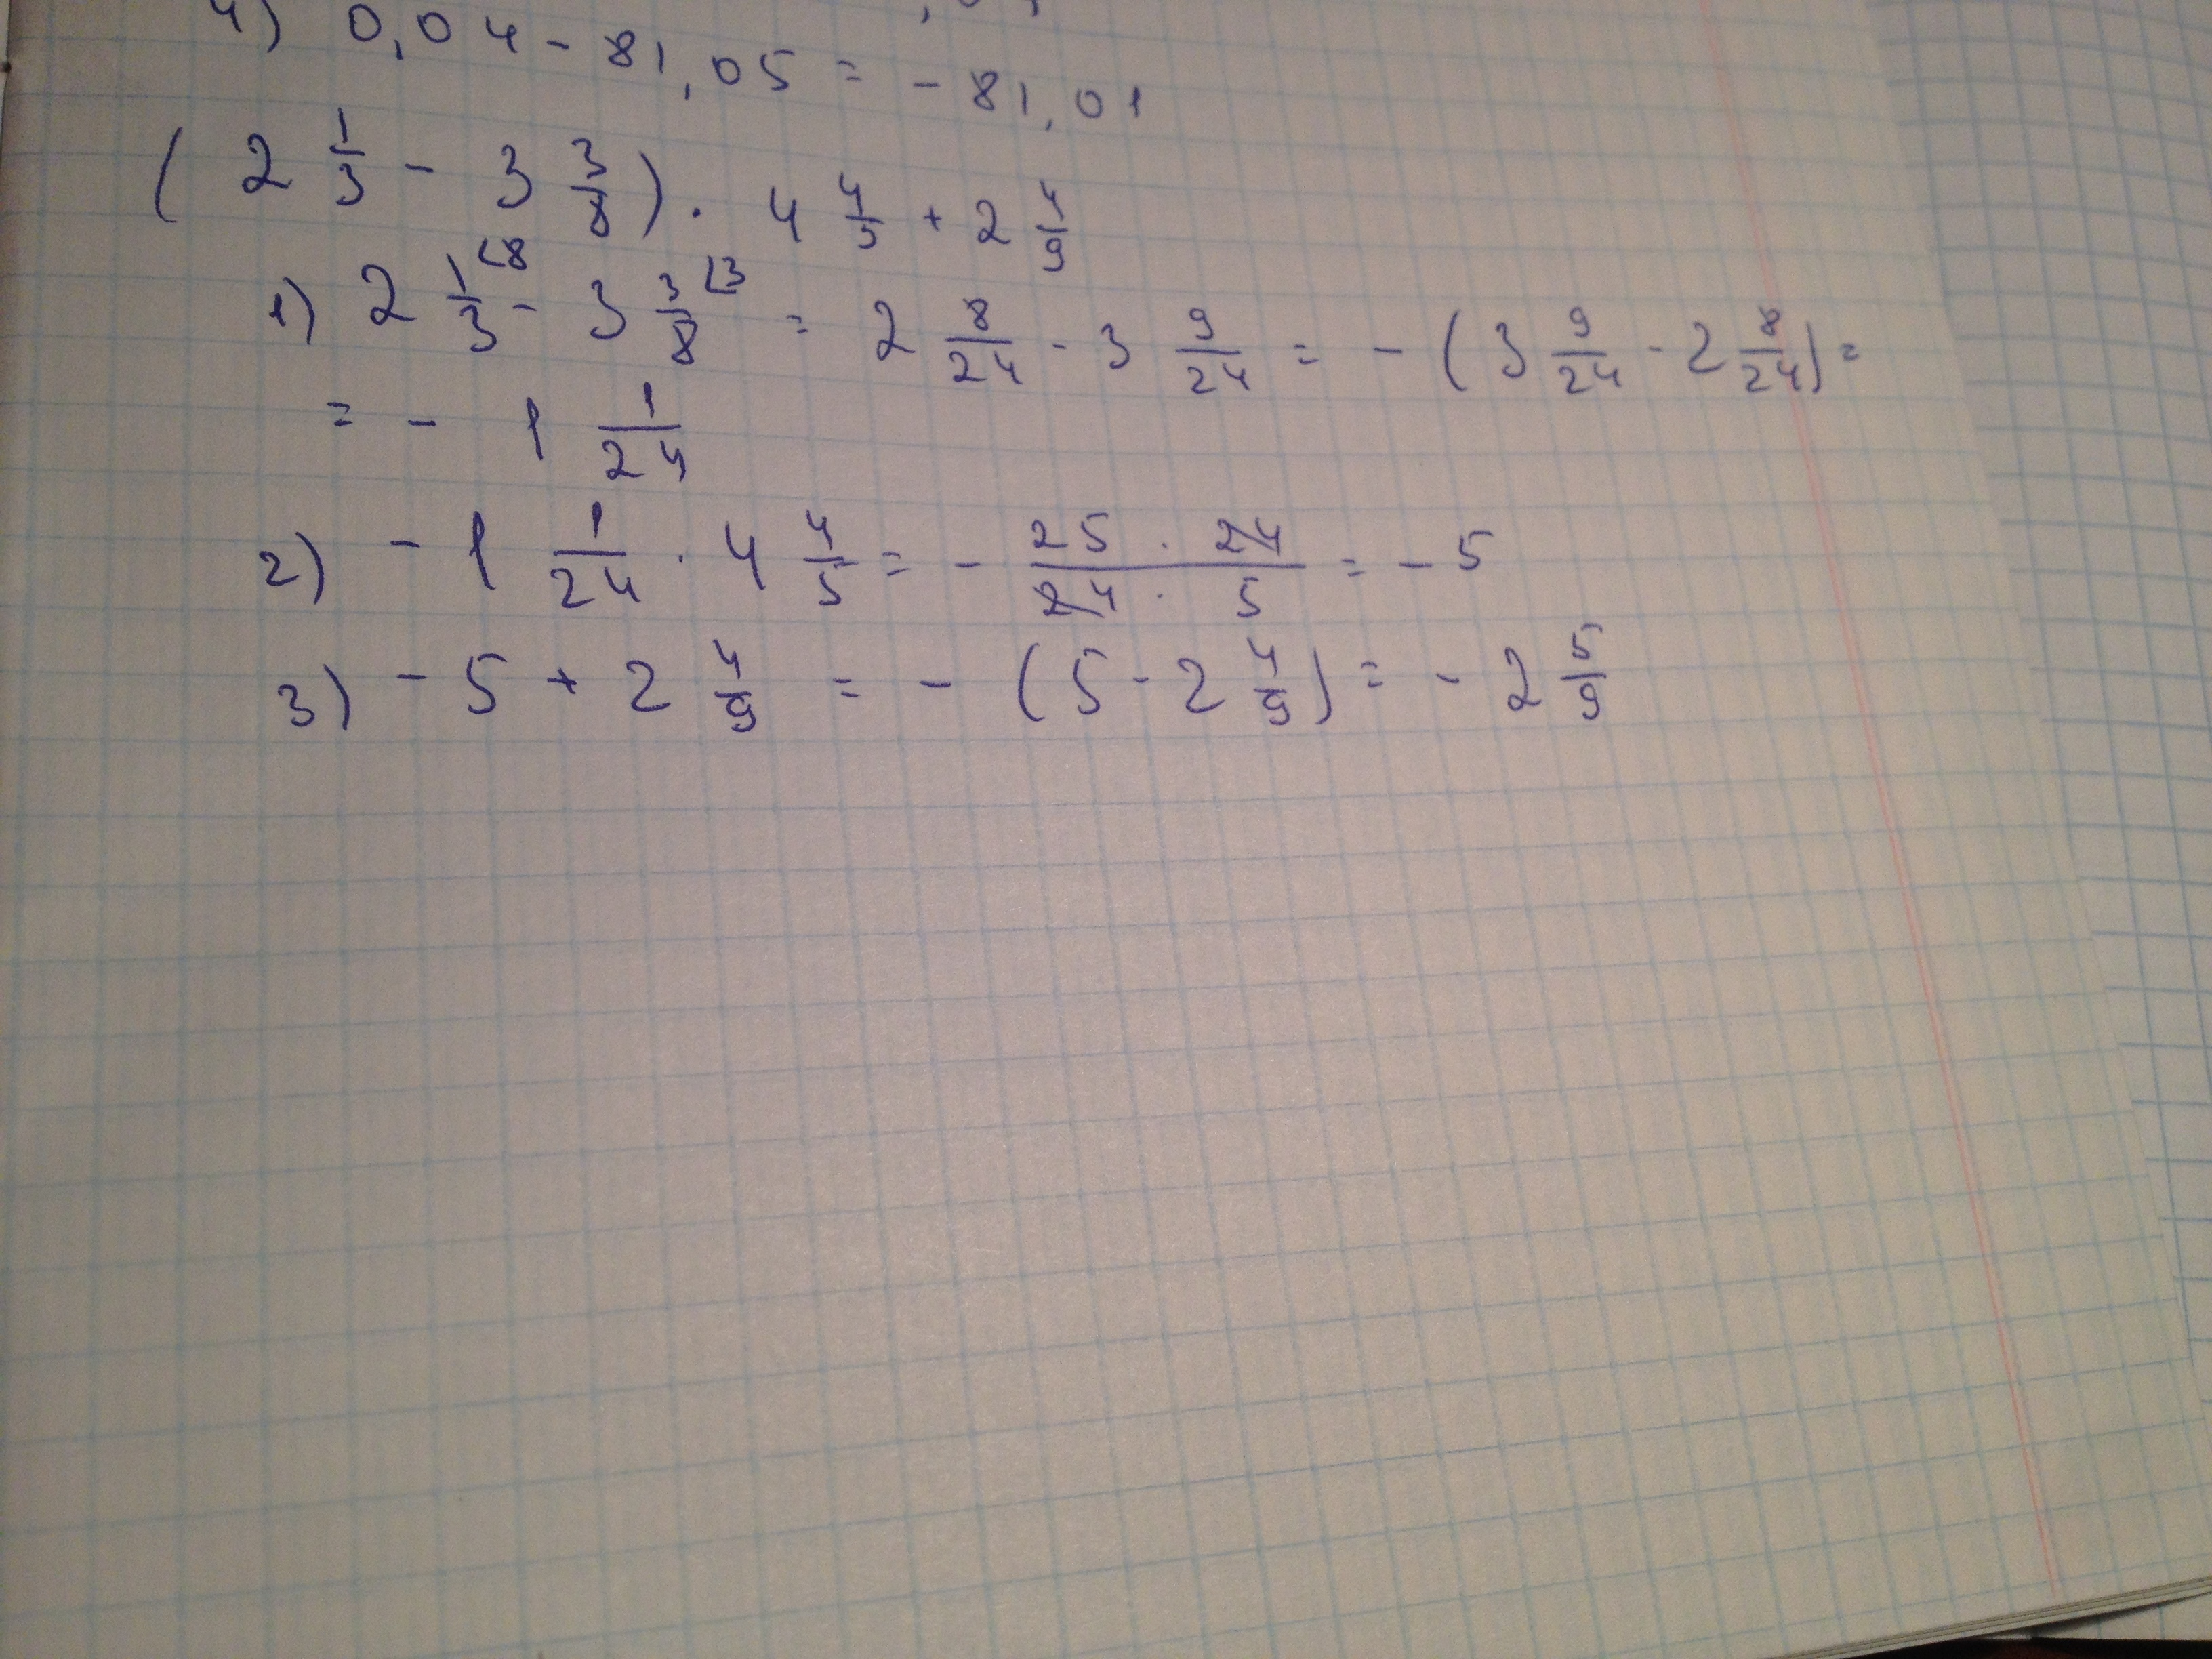 4) 0,04 - 81,05 = - 81,01
(2 1/3 - 3 3/8) · 4 4/5 + 2 4/9
1) 2 1/3 (8 - 3 3/8 (3 = 2 8/24 - 3 9/24 = - (3 9/24 - 2 8/24) =
= - 1 1/24
2) - 1 1/24 · 4 4/5 = - 25 · 24 / 24 · 5 = - 5
3) - 5 + 2 4/9 = - (5 - 2 4/9) = - 2 5/9